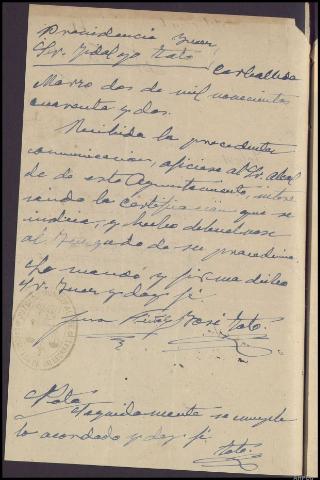 Providencia Juez
Sr. Hidalgo Tato Carballeda
Marzo dos de mil novecientos
cuarenta y dos.
Recibida la precedente
comunicacion, oficiese al Sr. Alcal
de de este Ayuntamiento, intere
sando la certificacion que se
indica, y hecho debuelvase
al Juzgado de su procedencia.
Lo mandó y firma dicho
Sr. Juez y doy fé.
José Tato
Nota
Seguidamente se cumple
lo acordado y doy fé
Tato.